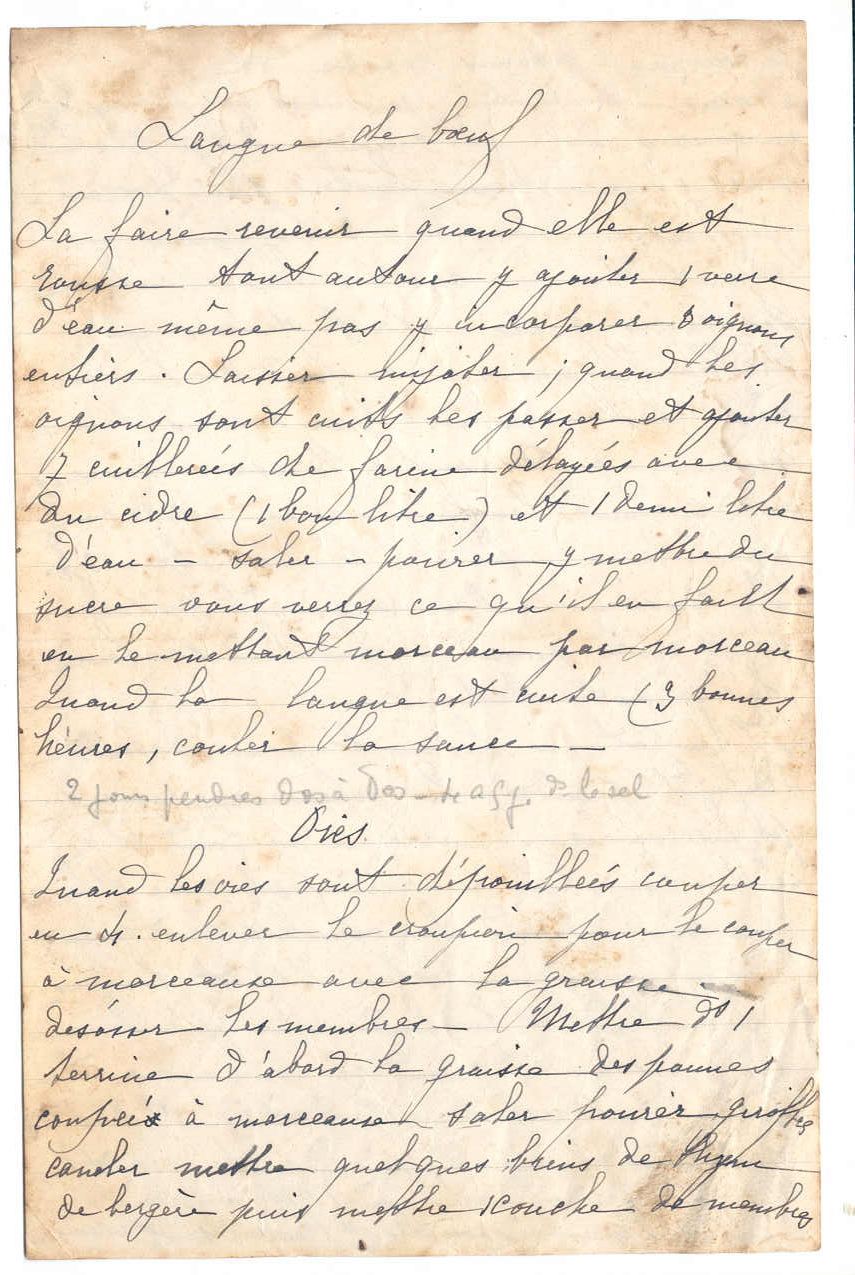 Langue de bœuf
La faire revenir quand elle est
rousse tout autour y ajouter 1 verre
d'eau même pas y incorporer 8 oignons
entiers. Laisser mijoter ; quand les
oignons sont cuits les passer et ajouter
7 cuillereés de farine délayées avec
du cidre (1 bon litre) et 1 demi litre
d'eau - saler - poivrer y mettre du
sucre vous verrez ce qu'il en faut
en le mettant morceau par morceau
Quand la langue est cuite (3 bonnes
heures, couler la sauce -
2 jours pendues dos à dos - 4 à 5 j. ds le sel
Oies
Quand les oies sont dépouilleés couper
en 4. enlever le croupion pour le couper
à morceause avec la graisse.
desósser les membres - Mettre ds 1
terrine d'abord la graisse des pannes
coupeéx à morceause saler poivrer girofles
caneler mettre quelques brins de thym
de bergère puis mettre 1 couche de membres